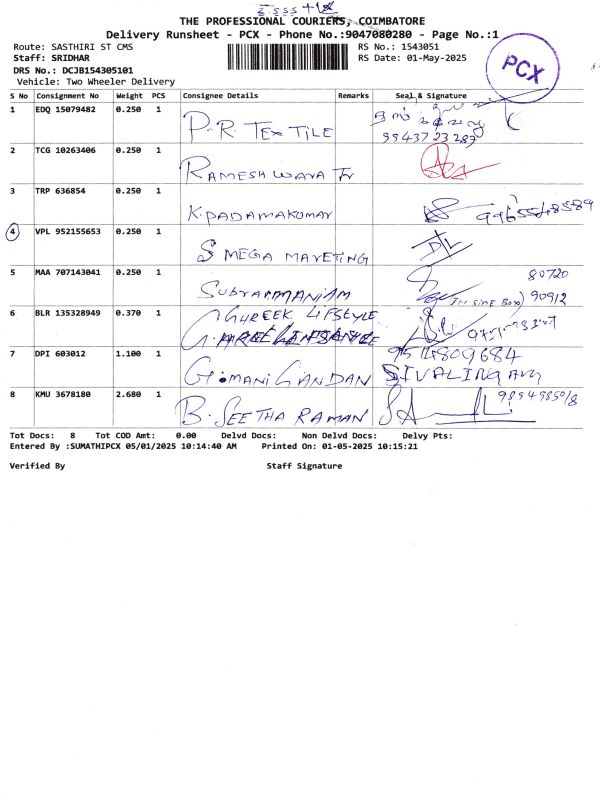 THE PROFESSIONAL COURIERS, COIMBATORE
Delivery Runsheet - PCX - Phone No.:9047080280 - Page No.:1
Route: SASTHIRI ST CMS
RS No.: 1543051
Staff: SRIDHAR
RS Date: 01-May-2025
DRS No.: DCJB154305101
Vehicle: Two Wheeler Delivery
PCX
S No Consignment No Weight PCS Consignee Details Remarks Seal & Signature
1 EDQ 15079482 0.250 1 P.R. TEXTILE
2 TCG 10263406 0.250 1 RAMESHWARA Tr
3 TRP 636854 0.250 1 K.PADAMAKUMAR
4 VPL 952155653 0.250 1 S MEGA MARETING
5 MAA 707143041 0.250 1 SUBYAMANIAM 80720
IN SIDE BOX) 90912
6 BLR 135328949 0.370 1 GUREEK LIFSTYLE
7 DPI 603012 1.100 1 G.MANIGANDAN 9514809684
8 KMU 3678180 2.680 1 B.SEETHA RAMAN
Tot Docs: 8 Tot COD Amt: 0.00 Delvd Docs: Non Delvd Docs: Delvy Pts:
Entered By :SUMATHIPCX 05/01/2025 10:14:40 AM Printed On: 01-05-2025 10:15:21
Verified By Staff Signature